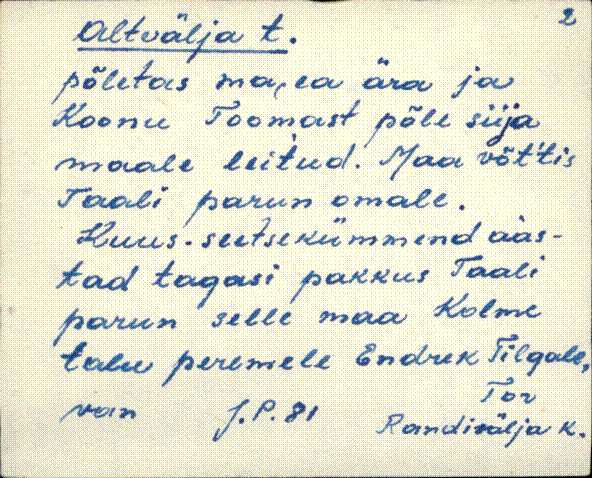 2
Altvälja t.
põletas ma, ea ära ja
Koonu Toomast põle siija
maale leitud. Maa võt'tis
Taali parun omale.
Kuus-seitsekümmend aas-
tad tagasi pakkus Taali
parun selle maa Kolme
talu peremele Endrek Tilgale,
van J.P. 81 Tor
Randivälja k.